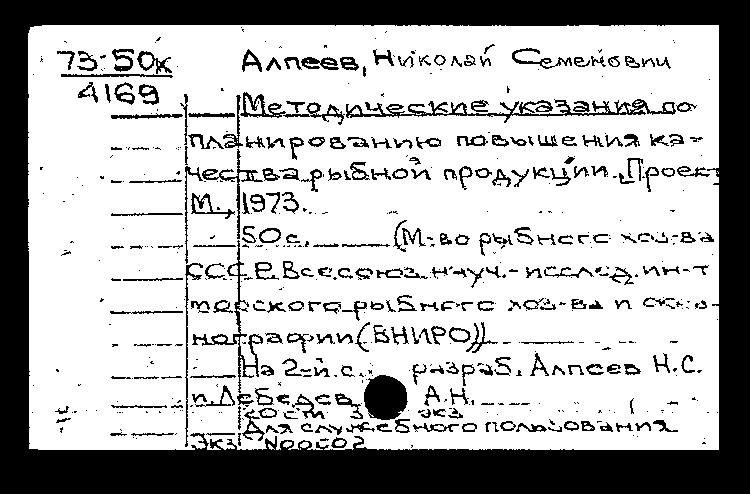 73-50к Алпеев, Николай Семенович
4169
Методические указания по
планированию повышения ка-
чества рыбной продукции. [Проект
М., 1973.
50 с. (М-во рыбного хоз-ва
СССР. Всесоюз. науч.-исслед. ин-т
морского рыбного хоз-ва и океа-
нографии (ВНИРО))
На 2-й с.: разраб. Алпеев Н.С.
и Лебедев А.Н.
экз
Для служебного пользования
Экз. N00002